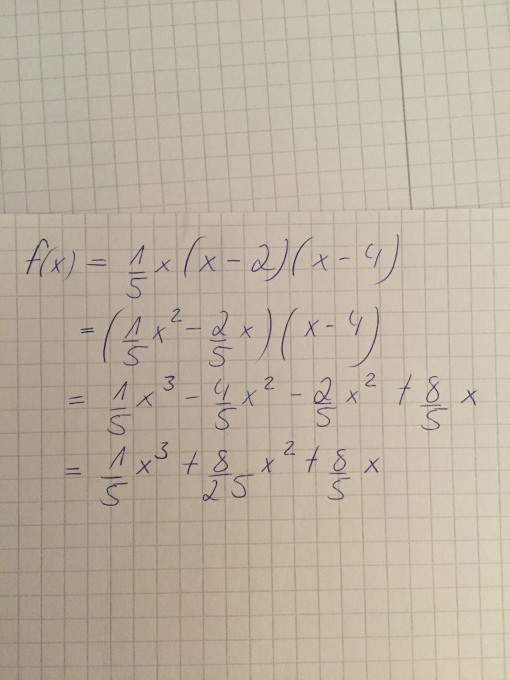 f(x) = 1/5 x (x - 2)(x - 4)
= (1/5 x² - 2/5 x)(x - 4)
= 1/5 x³ - 4/5 x² - 2/5 x² + 8/5 x
= 1/5 x³ + 8/25 x² + 8/5 x